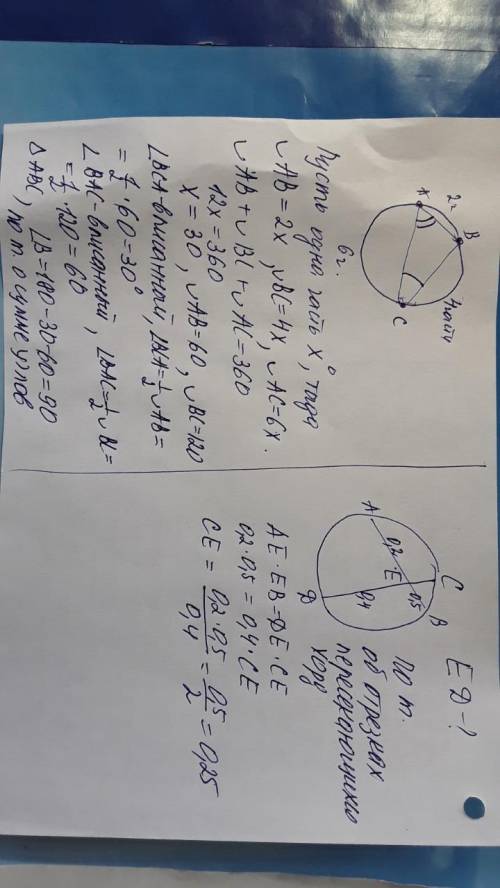 2ч.
B
4части
A
C
6ч.
Пусть одна часть x°, тогда
◡AB = 2x, ◡BC = 4x, ◡AC = 6x.
◡AB + ◡BC + ◡AC = 360
12x = 360
x = 30, ◡AB = 60, ◡BC = 120
∠BCA - вписанный, ∠BCA = ½ ◡AB =
= ½ · 60 = 30°
∠BAC - вписанный, ∠BAC = ½ ◡BC =
= ½ · 120 = 60
∠B = 180 - 30 - 60 = 90
△ABC, по т. о сумме углов
ЕД - ?
C
B
0,5
E
0,2
A
0,4
Д
по т.
об отрезках
пересекающихся
хорд
AE · EB = ДE · CE
0,2 · 0,5 = 0,4 · CE
CE = 0,2 · 0,5 / 0,4 = 0,5 / 2 = 0,25